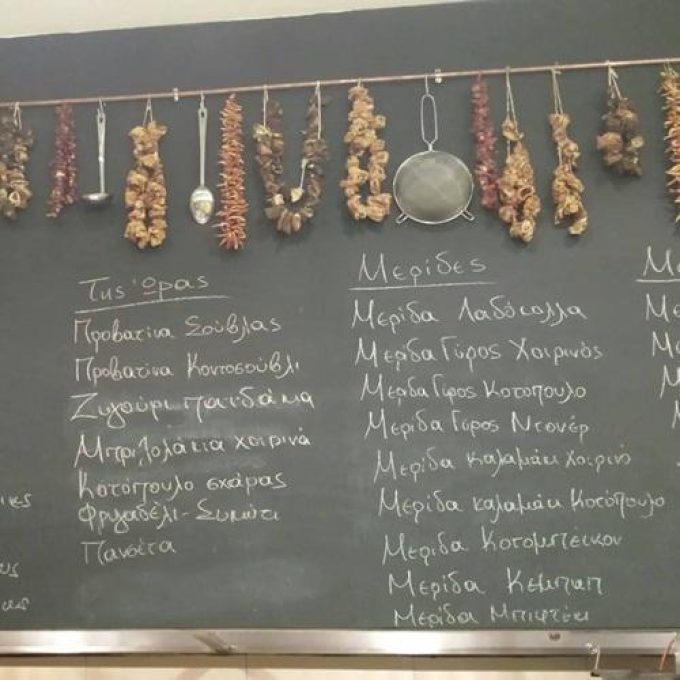 Της Ώρας
Προβατίνα Σούβλας
Προβατίνα Κοντοσούβλι
Ζυγούρι παιδάκια
Μπριζολάκια χοιρινά
Κοτόπουλο σχάρας
Φριγαδέλι - Συκώτι
Πανσέτα
Μερίδες
Μερίδα Λαδόκολλα
Μερίδα Γύρος Χοιρινός
Μερίδα Γύρος Κοτόπουλο
Μερίδα Γύρος Ντονέρ
Μερίδα καλαμάκι Χοιρινό
Μερίδα καλαμάκι Κοτόπουλο
Μερίδα Κοτομπέικον
Μερίδα Κεμπαπ
Μερίδα Μπιφτέκι